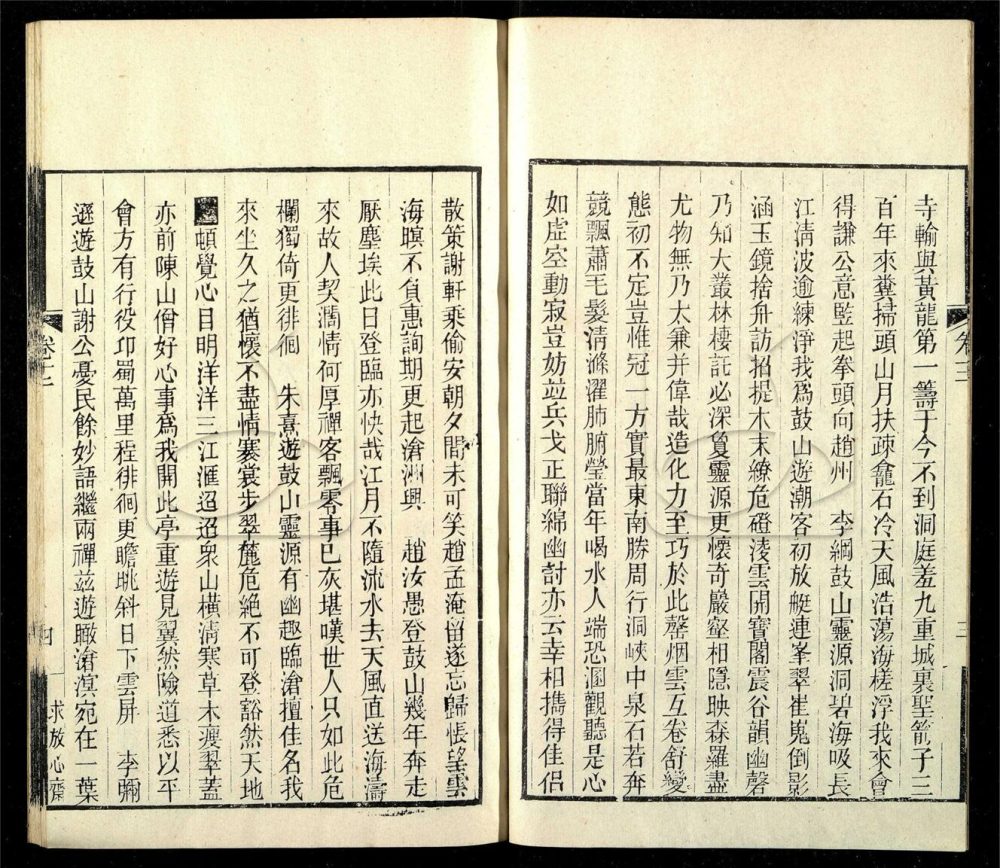 寺輸與黃龍第一籌于今不到洞庭羞九重城裏聖箭子三
百年來糞掃頭山月扶疎龕石冷天風浩蕩海槎浮我來會
得謙公意豎起拳頭向趙州　李綱鼓山靈源洞碧海吸長
江淸波逾練淨我爲鼓山遊潮客初放艇連峯翠崔嵬倒影
涵玉鏡捨舟訪招提木末繚危磴淩雲開寶閣震谷韻幽磬
乃知大叢林棲託必深夐靈源更懷奇巖壑相隱映森羅盡
尤物無乃太兼并偉哉造化力至巧於此罄烟雲互卷舒變
態初不定豈惟冠一方實最東南勝周行洞峽中泉石若奔
競飄蕭毛髮淸滌濯肺腑瑩當年喝水人端恐溷觀聽是心
如虛空動寂豈妨竝兵戈正聯綿幽討亦云幸相攜得佳侶
卷十三
三
散策謝軒乘偷安朝夕間未可笑趙孟淹留遂忘歸悵望雲
海暝不負惠詢期更起滄洲興　趙汝愚登鼓山幾年奔走
厭塵埃此日登臨亦快哉江月不隨流水去天風直送海濤
來故人契濶情何厚禪客飄零事已灰堪嘆世人只如此危
欄獨倚更徘徊　朱熹遊鼓山靈源有幽趣臨滄擅佳名我
來坐久之猶懷不盡情褰裳步翠麓危絶不可登豁然天地
頓覺心目明洋洋三江滙迢迢衆山橫淸寒草木瘦翠蓋
亦前陳山僧好心事爲我開此亭重遊見翼然險道悉以平
會方有行役卭蜀萬里程徘徊更瞻眺斜日下雲屏　李彌
遜遊鼓山謝公憂民餘妙語繼兩禪兹遊瞰滄溟宛在一葉
卷十三
四
求放心齋